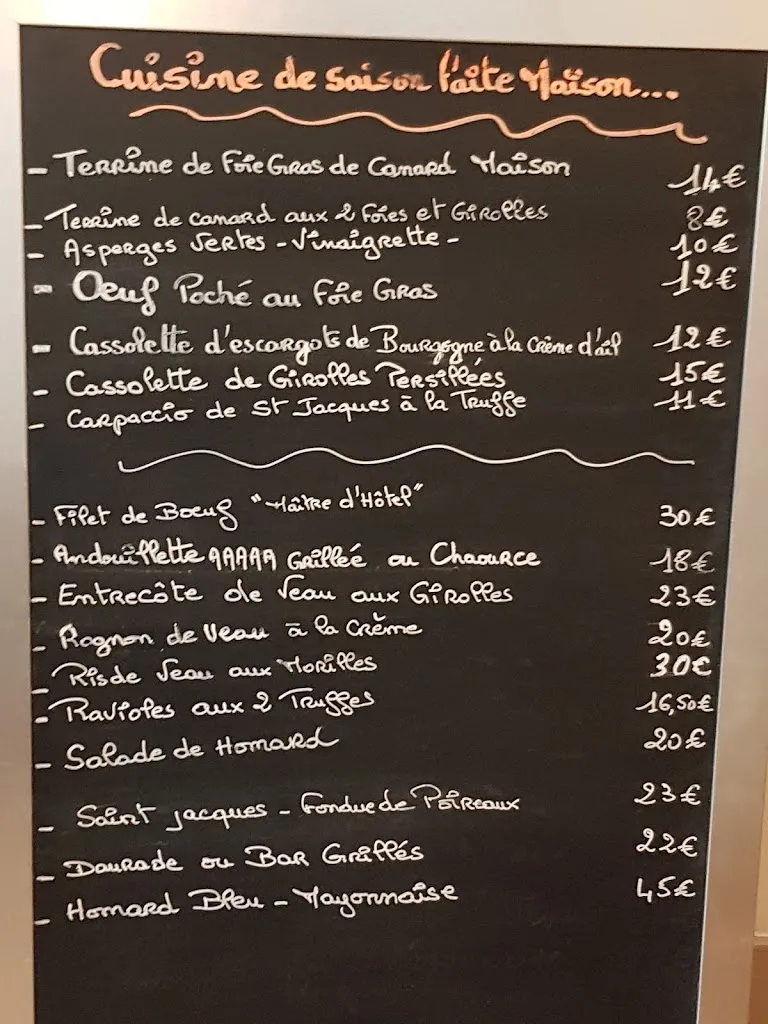 Cuisine de saison faite Maïson...
- Terrine de Foie Gras de Canard Maison 14€
- Terrine de canard aux 2 Foies et Girolles 8€
- Asperges Vertes - Vinaigrette - 10€
- Oeuf Poché au Foie Gras 12€
- Cassolette d'escargots de Bourgogne à la Crème d'ail 12€
- Cassolette de Girolles Persillées 15€
- Carpaccio de St Jacques à la Truffe 11€
- Filet de Boeuf "Maître d'Hôtel" 30€
- Andouillette AAAAA Grilléé ou Chaource 18€
- Entrecôte de Veau aux Girolles 23€
- Rognon de Veau à la Crème 20€
- Ris de Veau aux Morilles 30€
- Ravioles aux 2 Truffes 16,50€
- Salade de Homard 20€
- Saint Jacques - Fondue de Poireaux 23€
- Daurade ou Bar Grillés 22€
- Homard Bleu - Mayonnaise 45€